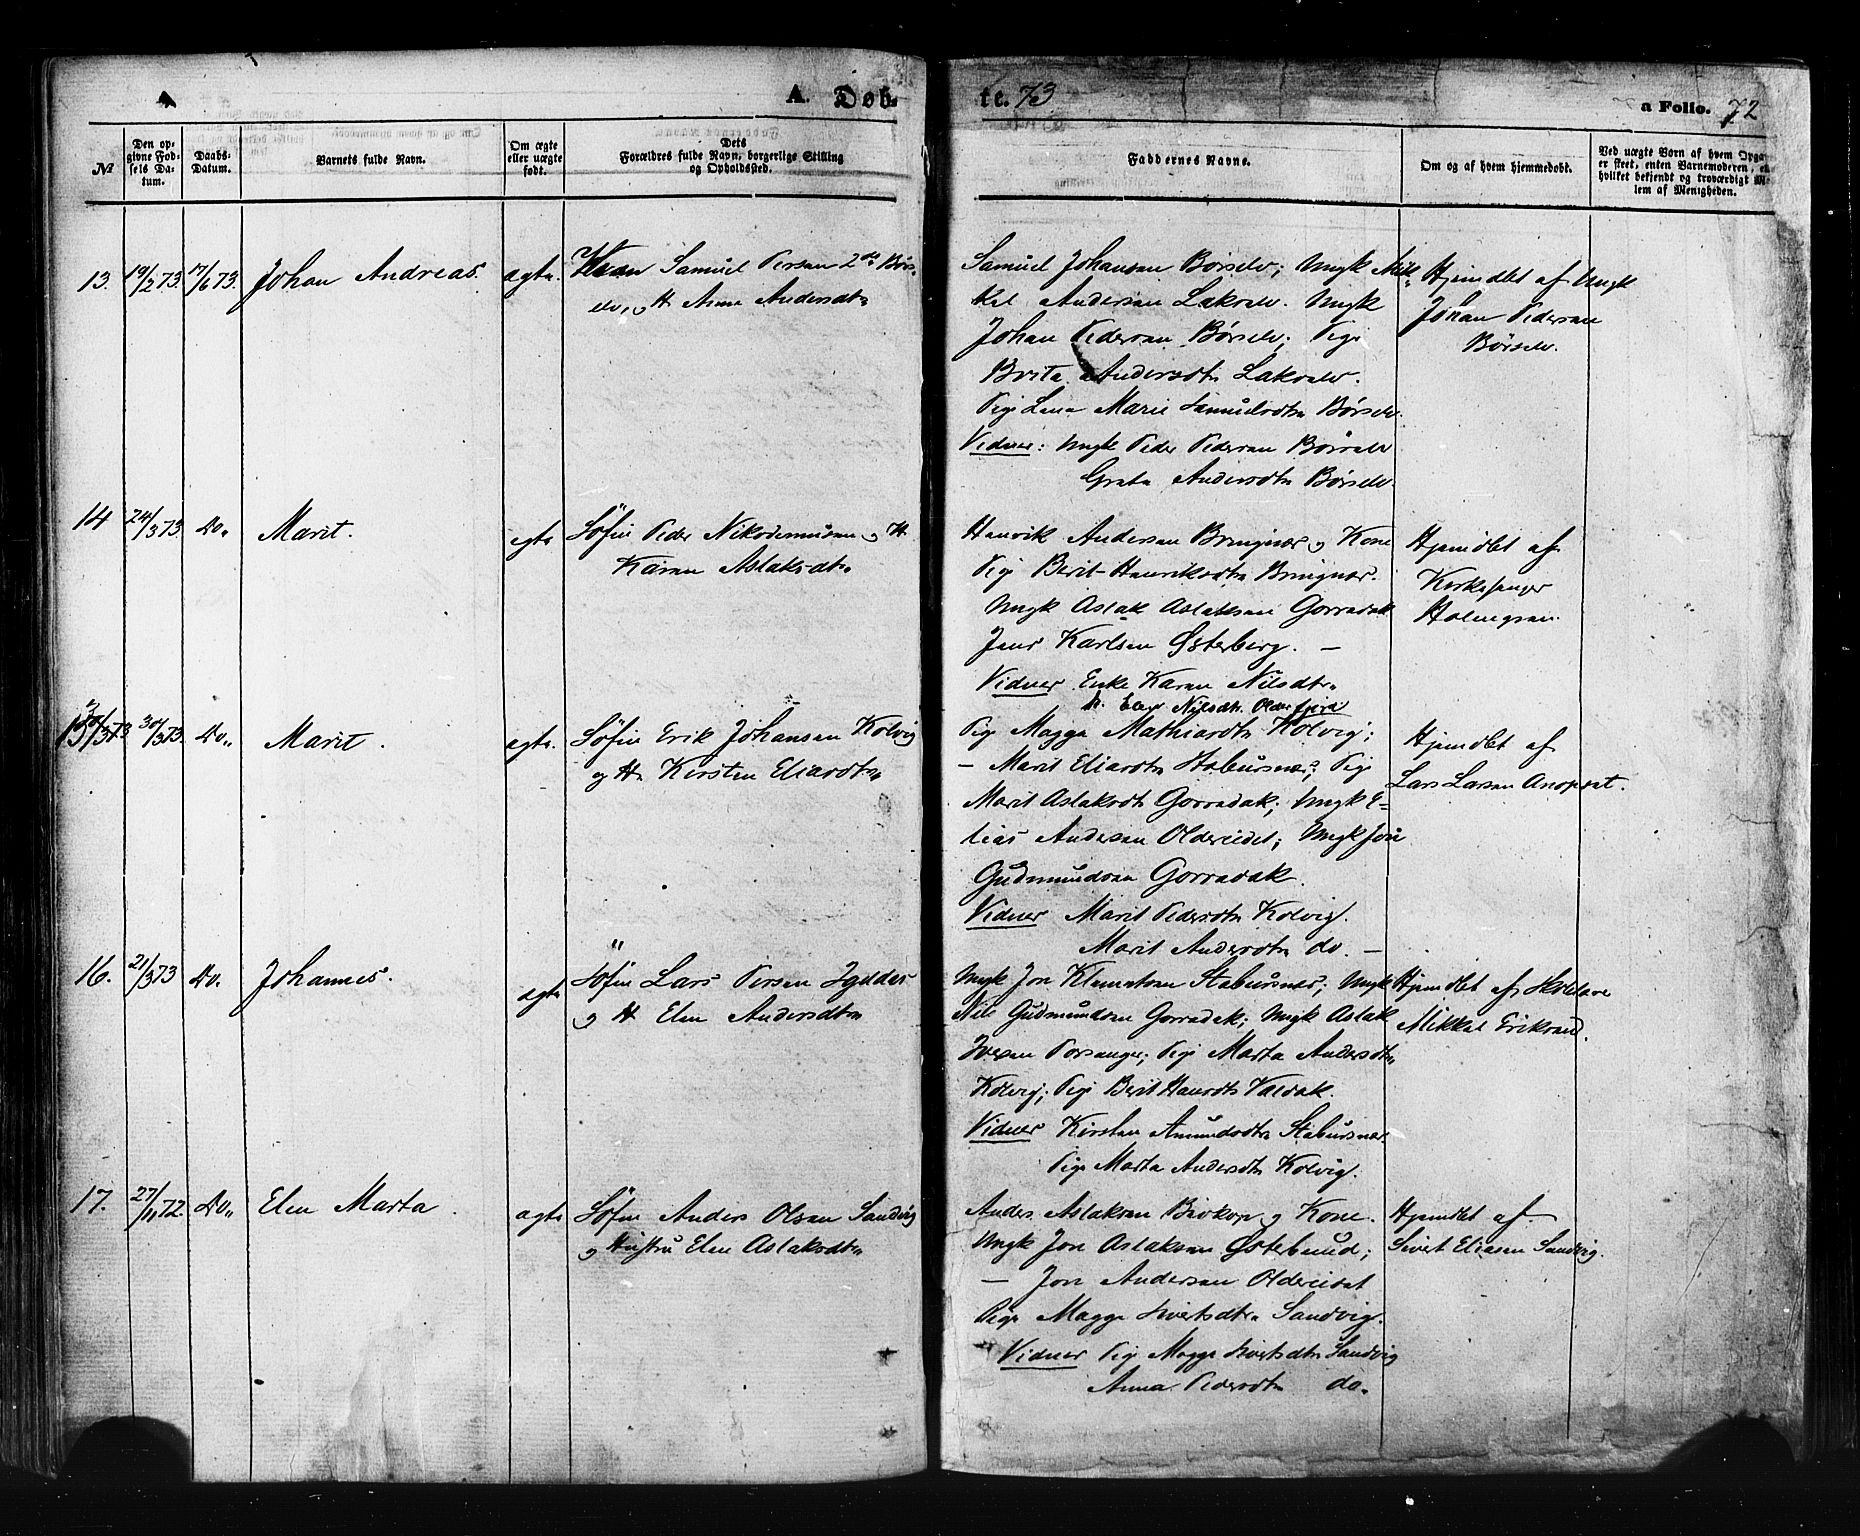 A. Døb-
№
Den op-
givne Fød-
sels Da-
tum.
Daabs-
Datum.
Barnets fulde Navn.
Om ægte
eller uægte
født.
Dets
Forældres fulde Navn, borgerlige Stilling
og Opholdssted.
13. 19/2 73. 17/6 73. Johan Andreas. ægte. Kvæn Samuel Persen 2den Børs-
elv, og H. Anna Andersdtr
14 24/3 73. Do. Marit. egte Søfin Peder Nikodemusen og H.
Karen Aslaksdtr.
15 73. 30/3 73. Do. Marit. ægte. Søfin Erik Johansen Kolvig
og H. Kirsten Eliasdtr
16. 21/3 73 Do. Johannes. ægte Søfin Lars Persen
og H. Elen Andersdtr
17. 27/11 72. Do. Elen Marta. ægte Søfin Anders Olsen Sandvig
og Hustru Elen Aslaksdtr
te. 73
a Folio. 72
Faddernes Navne.
Om og af hvem hjemmedøbt.
Ved uægte Børn af hvem Opga-
er skeet, enten Barnemoderen, e
hvilket bekjendt og troværdigt M-
lem af Menigheden.
Samuel Johansen Børselv; Ungk Mik-
kel Andersen Lakselv. Ungk
Johan Pedersen Børselv; Pige
Brita Andersdtr Lakselv.
Pige Lena Marie Samuelsdtr Børselv.
Vidner: Ungk Peder Pedersen Børselv
Greta Andersdtr Børselv.
Hjemdbt af Ungk
Johan Pedersen
Børselv.
Henrik Andersen Bringnes og Kone
Pige Berit Henriksdtr Bringnes.
Ungk Aslak Aslaksen Gorradak
Jens Karlsen Østerberg. —
Vidner Enke Karen Nilsdtr
Nilsdtr. Olderfjord
Hjemdbt af
Kirkesanger
Holmgren.
Pige Magga Mathisdtr Kolvig;
— Marit Eliasdtr Stabursnes; Pige
Marit Aslaksdtr Gorradak; Ungk E-
lias Andersen Oldereidet; Ungk Jon
Gudmundsen Gorradak.
Vidner Marit Pedersdtr Kolvig.
Marit Andersdtr do. —
Hjemdbt af
Lars Larsen
Ungk Jon Klemetsen Stabursnes; Ungk
Nils Gudmundsen Gorradak; Ungk Aslak
Iversen Porsanger; Pige Marta Andersdtr
Kolvig; Pige Berit Hansdtr Valdak.
Vidner Kirsten Amundsdtr Stabursnes
Pige Marta Andersdtr Kolvig.
Hjemdbt af
Mikkel Eriksen.
Anders Aslaksen og Kone.
Ungk Jon Aslaksen Østerbund;
— Jon Andersen Oldereidet
Pige Magga Sivertsdtr Sandvig.
Vidner Pige Magga Sivertsdtr Sandvig
Anna Pedersdtr do.
Hjemdbt af
Sivert Eliasen Sandvig.